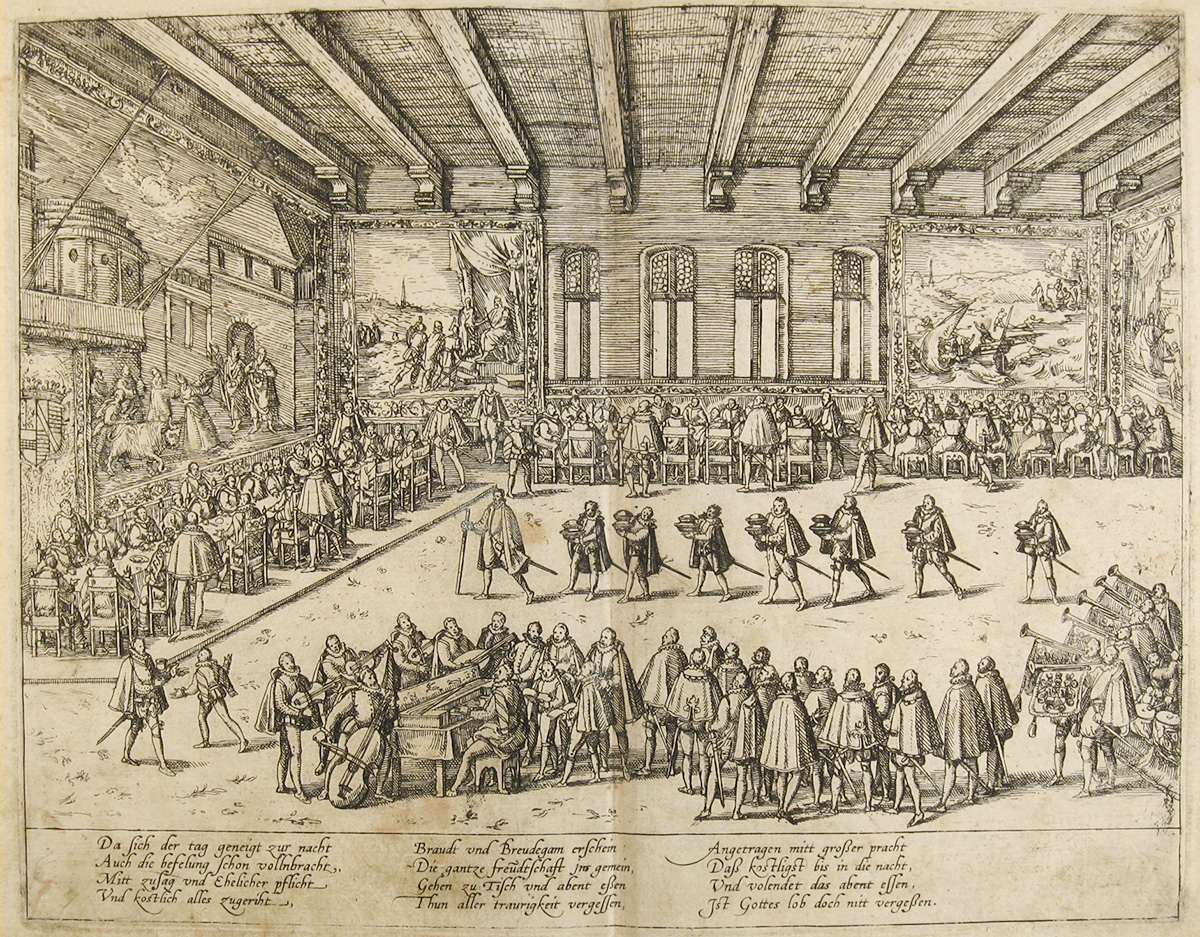 Da sich der tag geneigt zur nacht
Auch die befelung schon vollnbracht,
Mitt zusag vnd Ehelicher pflicht
Vnd kostlich alles zugeriht,
Braudt vnd Breudegam erschein
Die gantze freüdtschaft jns gemein,
Gehen zu Tisch vnd abent eßen
Thun aller traurigkeit vergessen,
Angetragen mitt großer pracht
Daß kostligst bis in die nacht,
Vnd volendet das abent essen,
Jst Gottes lob doch nitt vergeßen.